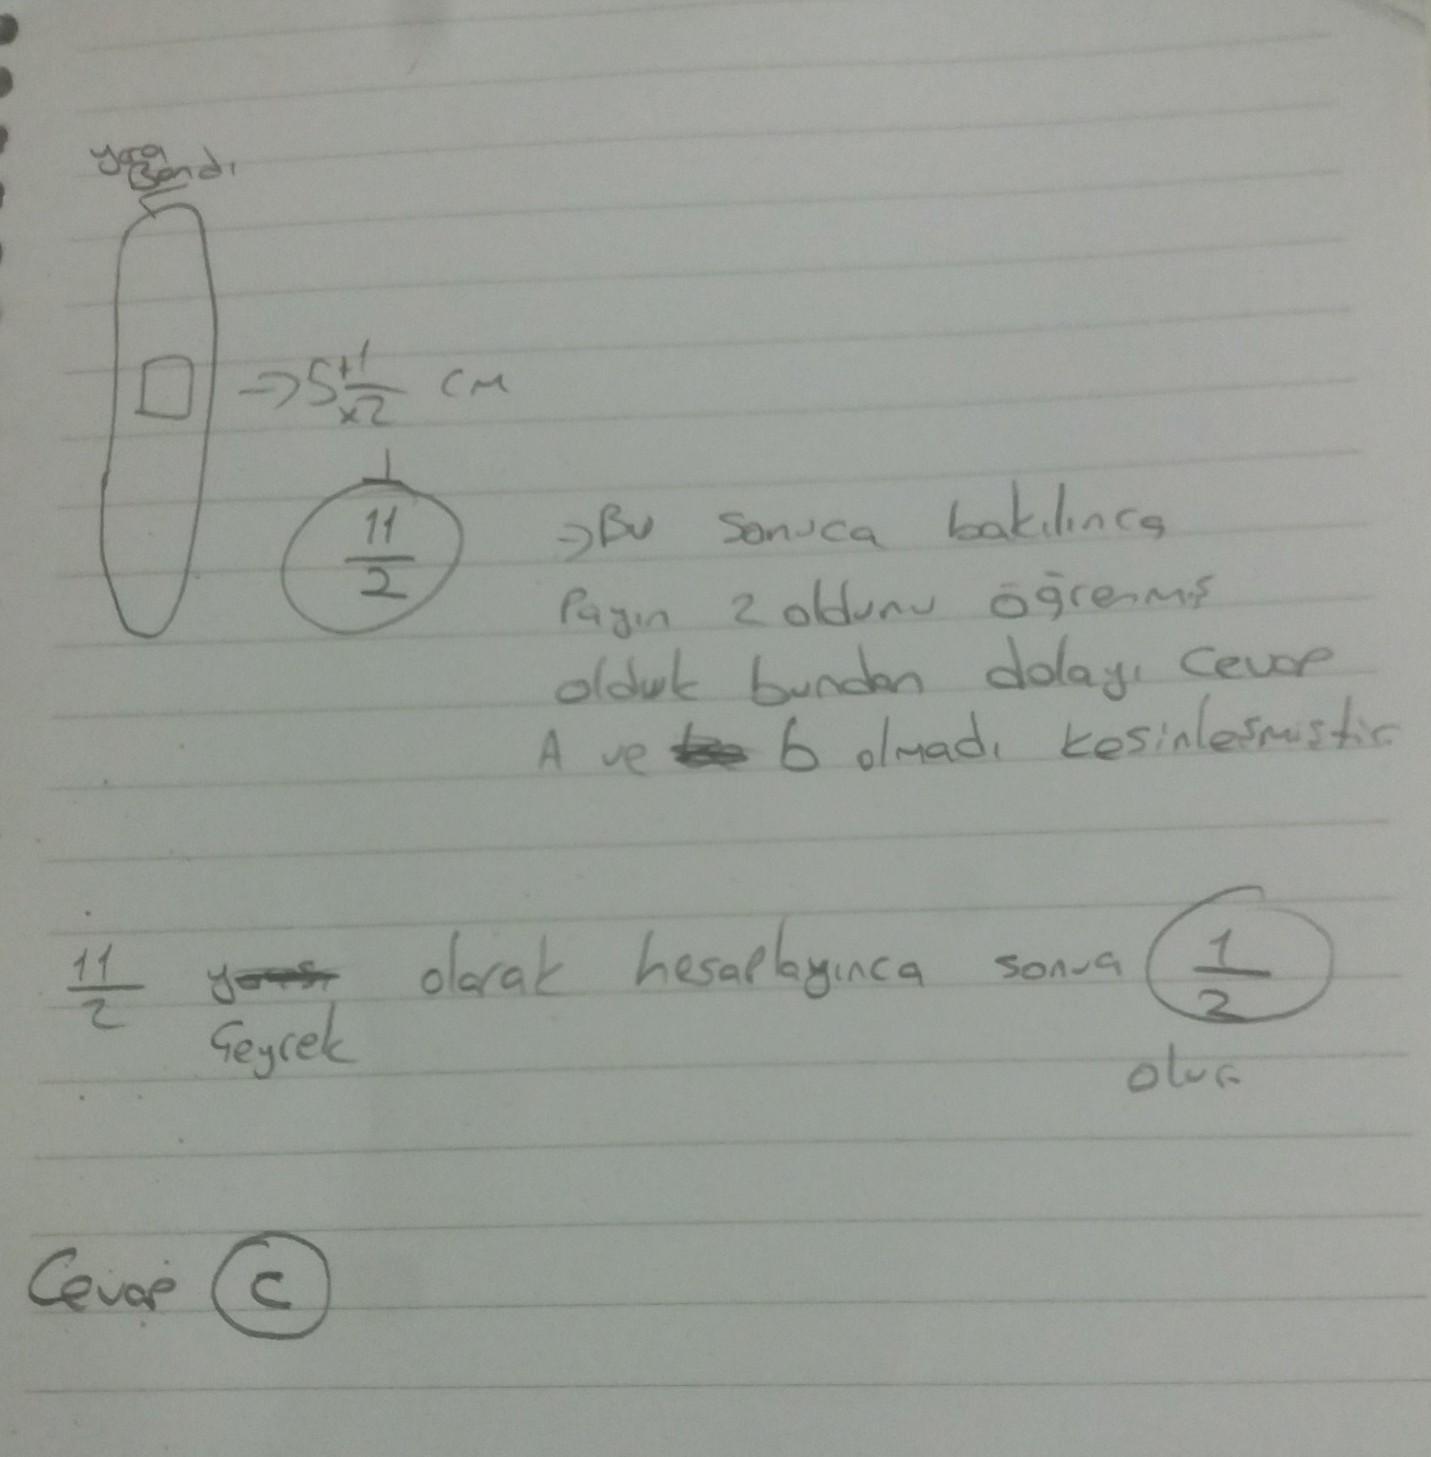 yara
Bandı
→ 5 +1/x2 cm
11/2
→ Bu sonuca bakılınca
Payın 2 oldunu öğrenmiş
olduk bundan dolayı cevap
A ve b olmadı kesinleşmiştir
11/2 olarak hesaplayınca sonra 1/2
Geyrek
olur
Cevap C